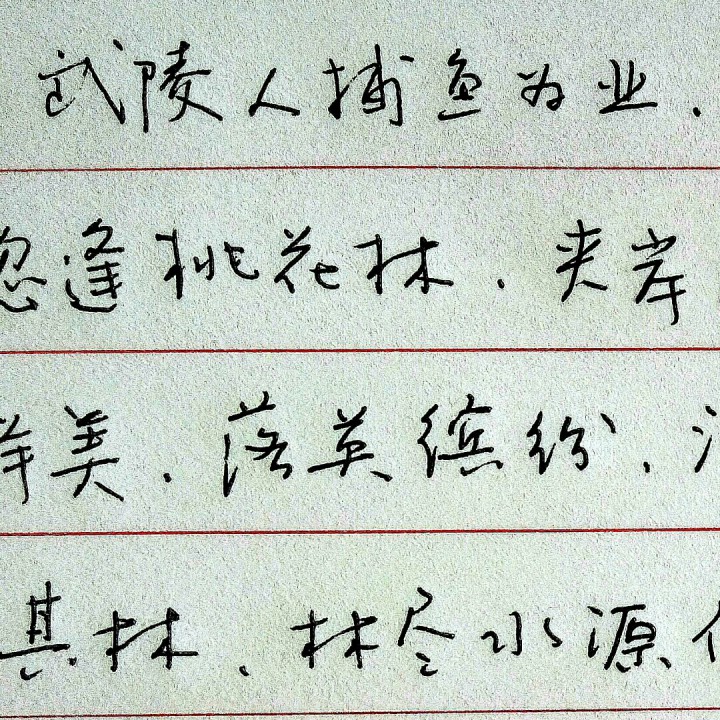 武陵人捕鱼为业.
忽逢桃花林.夹岸
鲜美.落英缤纷.
其林.林尽水源